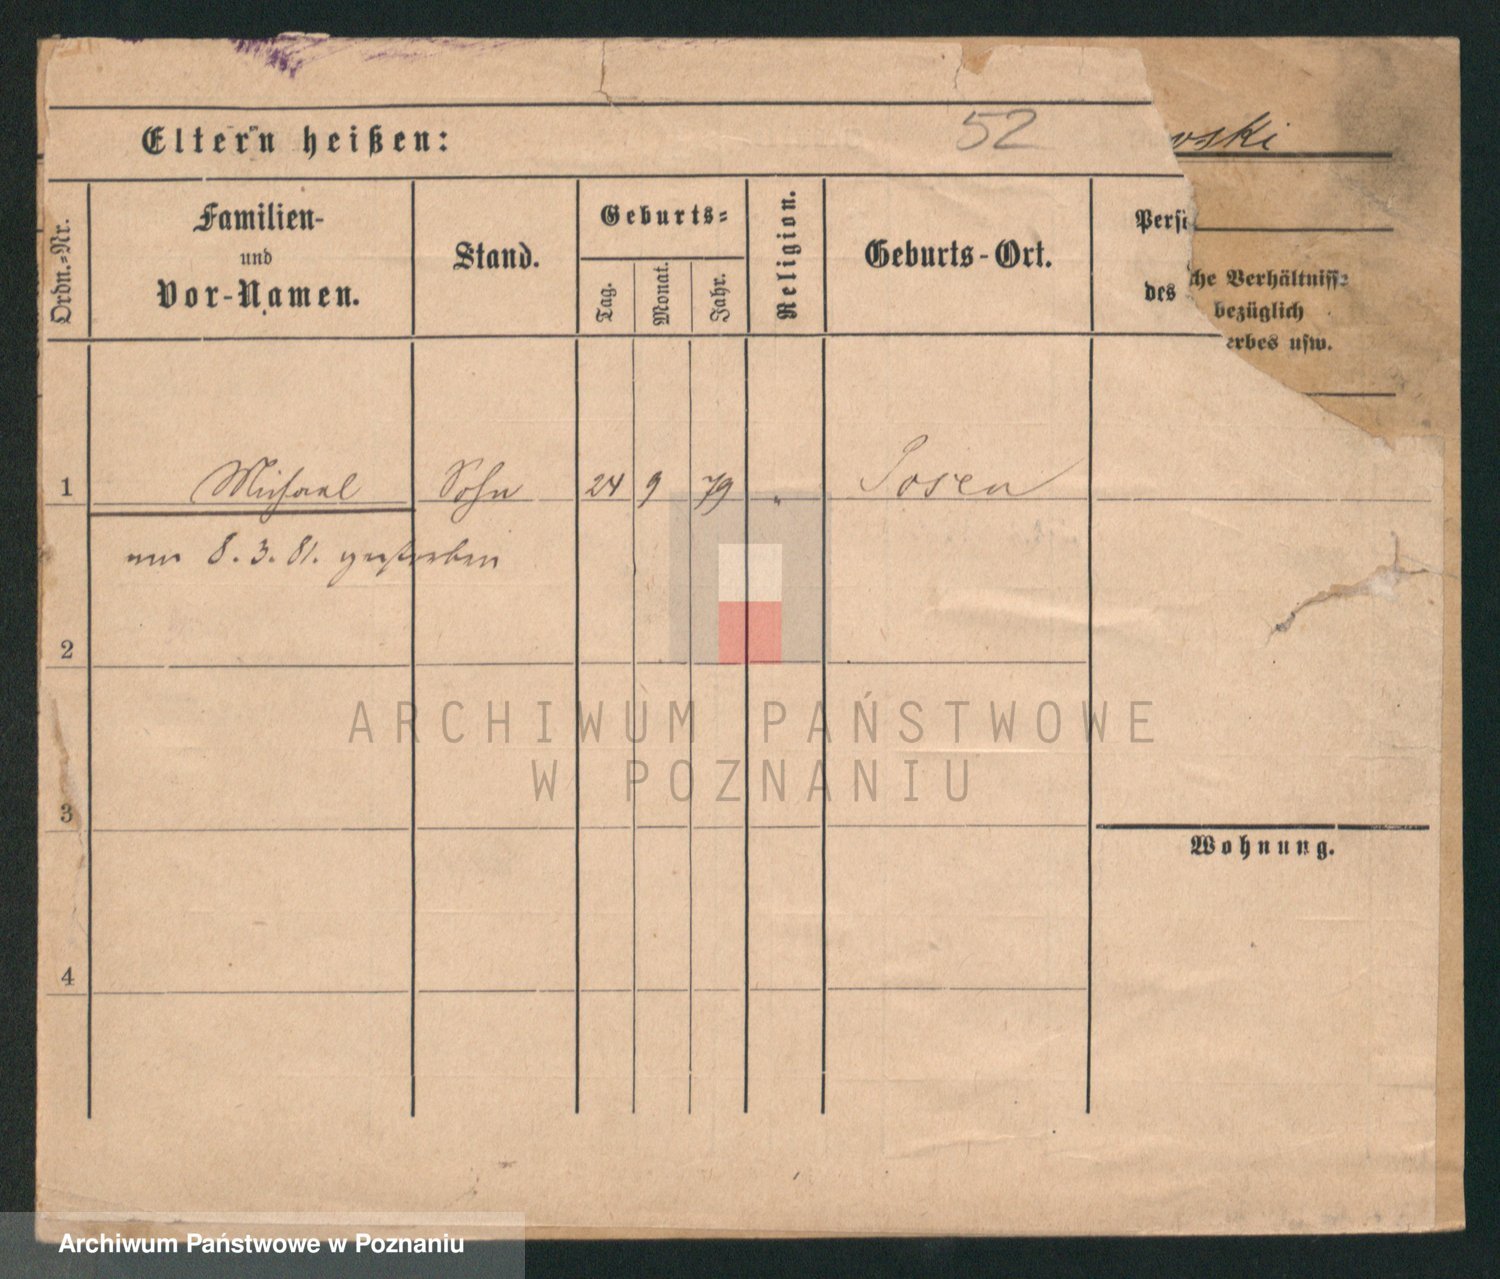 Eltern heißen:
52
wski
Ordn.-Nr.
Familien-
und
Vor-Namen.
Stand.
Geburts-
Tag.
Monat.
Jahr.
Religion.
Geburts-Ort.
Persö
des
che Verhältnisse
bezüglich
erbes usw.
1 Michael Sohn 24 9 79 " Posen
am 8. 3. 81. gestorben
2
3
4
Wohnung.
ARCHIWUM PAŃSTWOWE
W POZNANIU
Archiwum Państwowe w Poznaniu